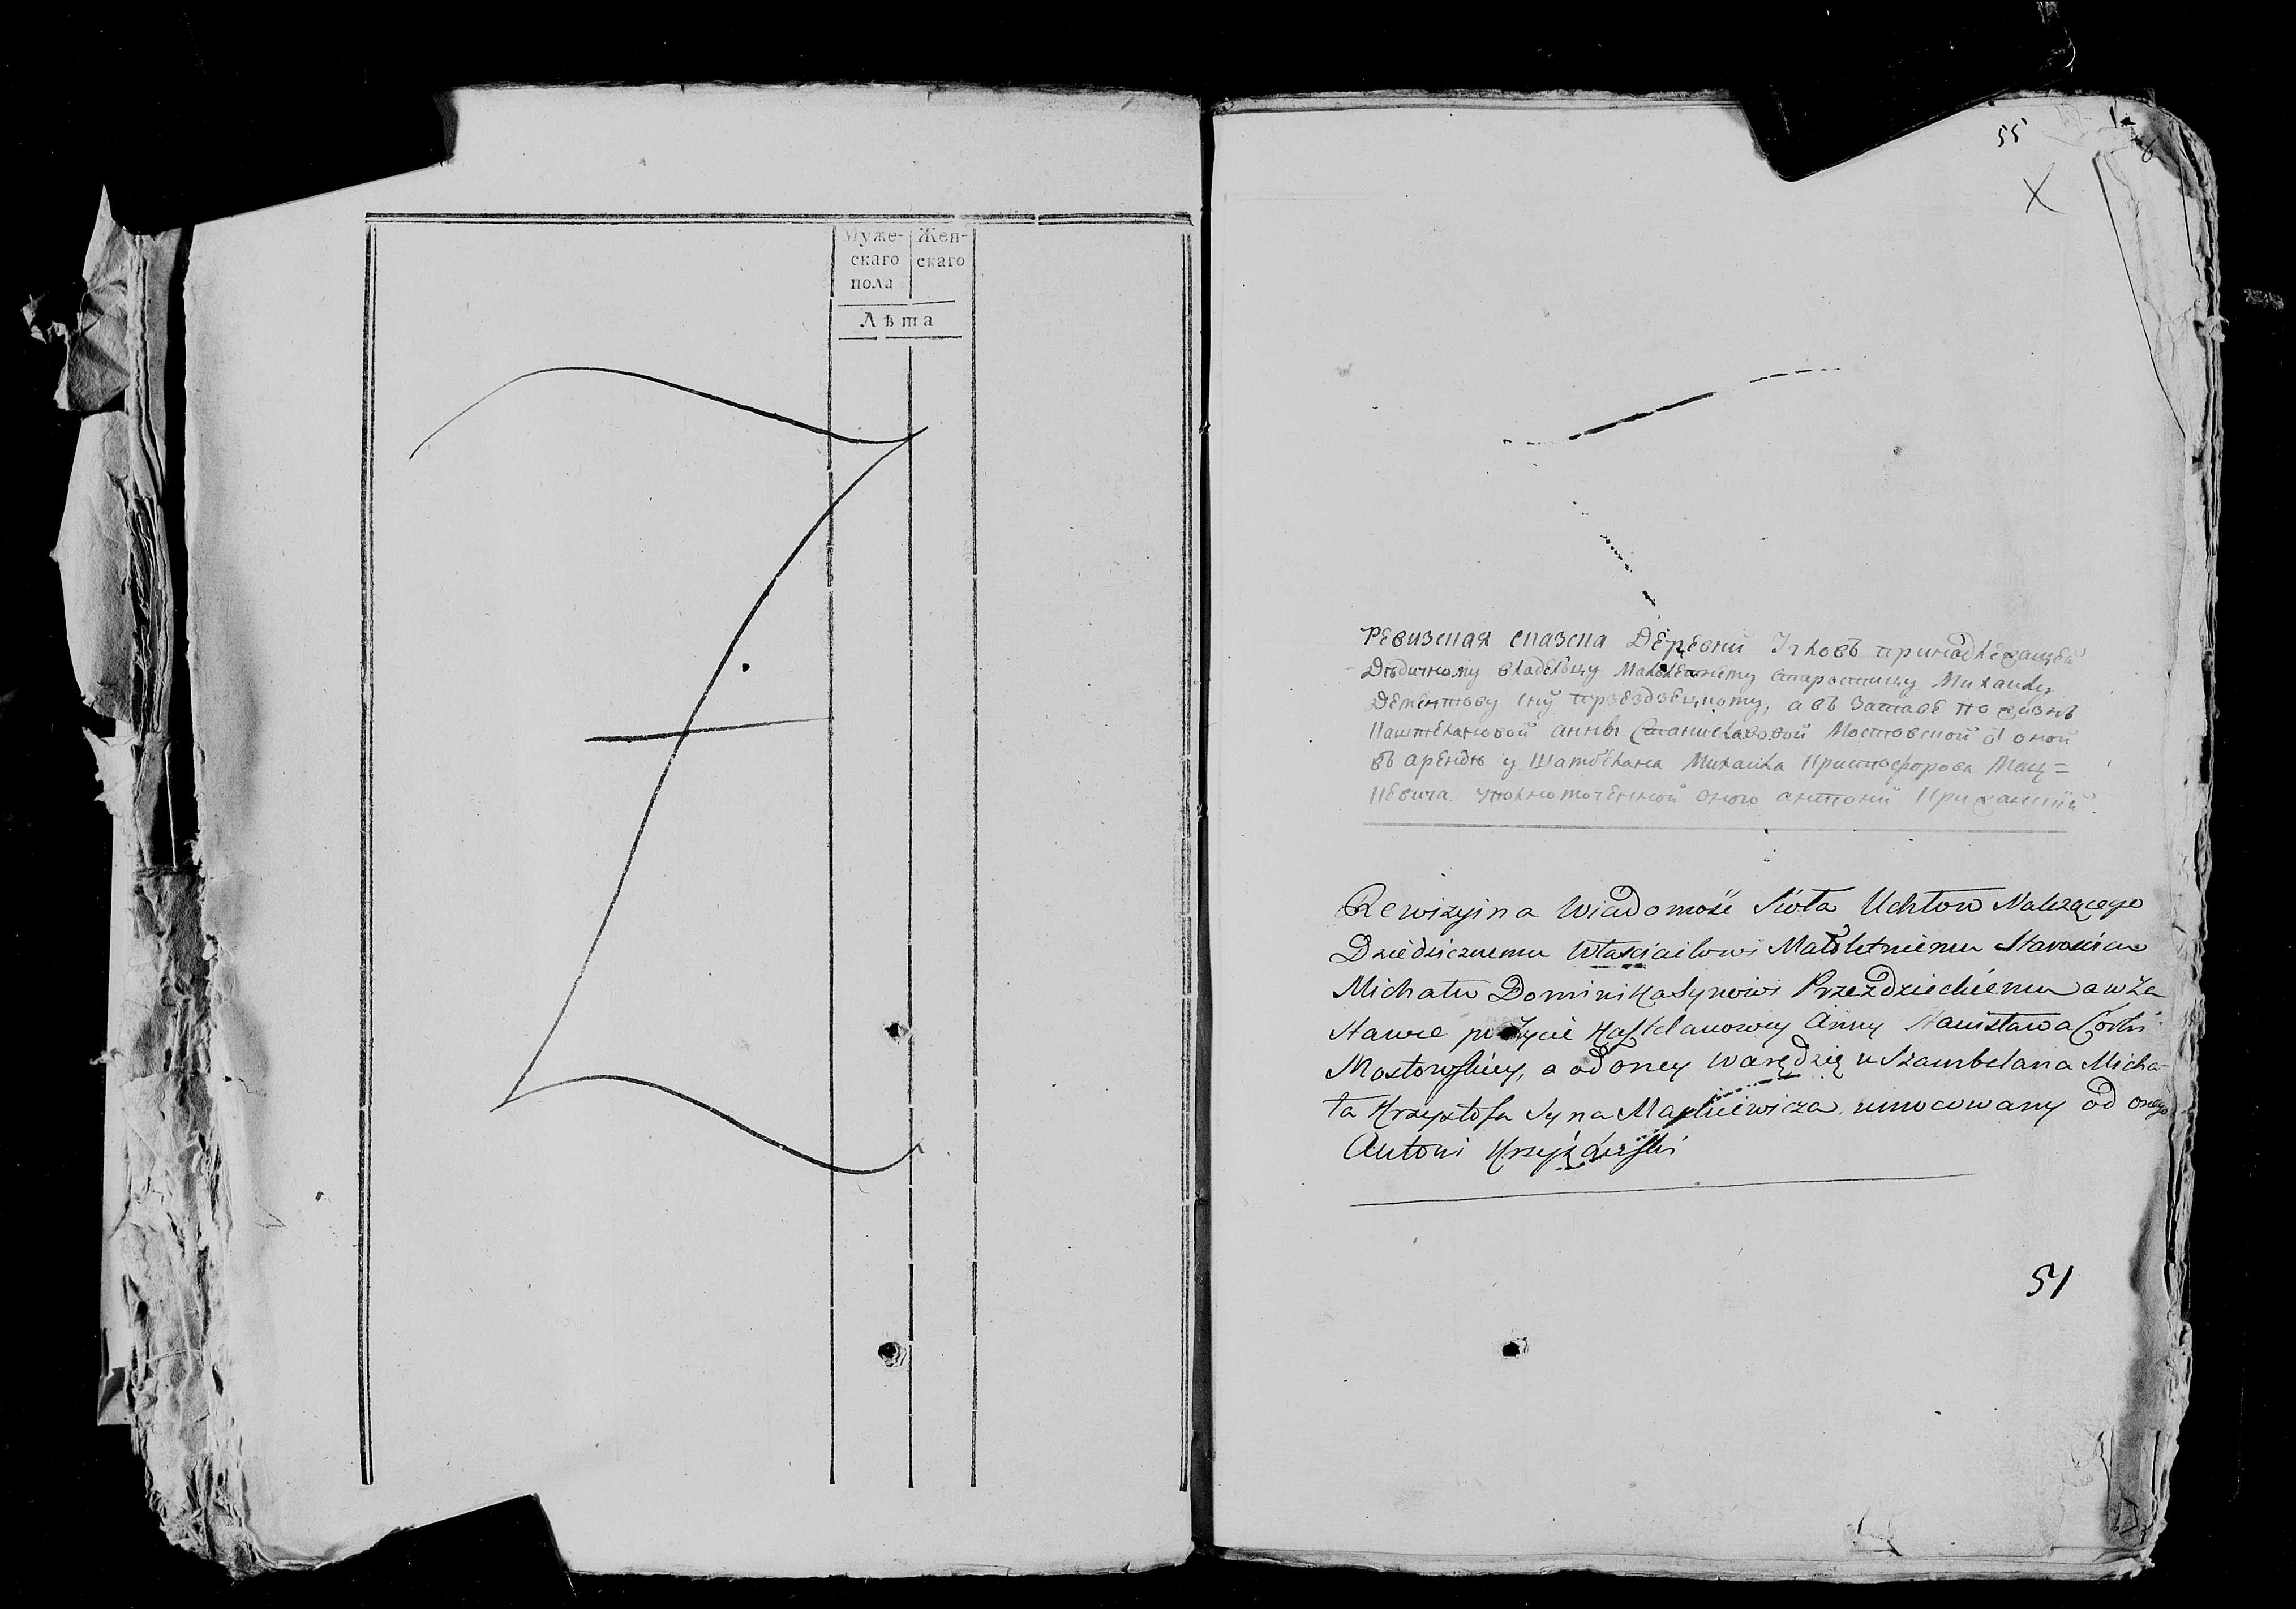 Муже-
скаго
пола
Жен-
скаго
Лѣта
55
6
Ревизская сказска Деревни принадлежащей
Дѣдичному владельцу Малолетнему старостицу Михаилу
сну пржездзецкому, а въ заставе по жизнь
Каштеляновой анны Станиславовой Мостовской а оной
въ арендѣ у Шамбеляна Михаила Криштофорова Мац=
кевича уполномоченной оного антоний
Rewizyina Wiadomość Sioła Uchłow Należącego
Dziedzicznemu Właścicilowi Małoletniemu Starościcu
Michału Dominika Synowi Przezdzieckiemu a w Za
stawie po życie Kasztelanowey Anny Stanisława Corki
Mostowskiey, a od oney w arędzie u Szambelana Micha-
ła Krzysztofa Syna Mackiewicza umocowany od onego
Antoni Krzyżański
51